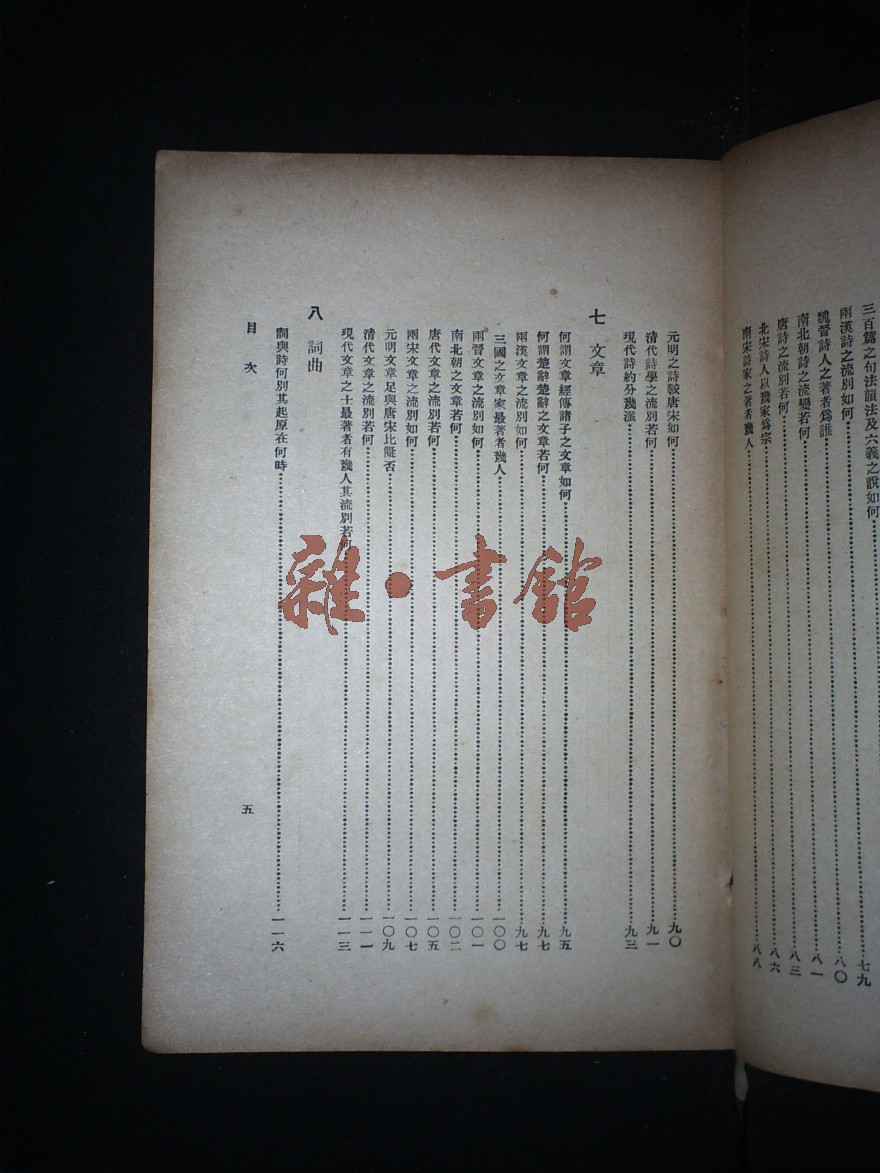 三百篇之句法韻法及六義之說如何………七九
兩漢詩之流別如何………八〇
魏晉詩人之著者爲誰………八一
南北朝詩之流變若何………八三
唐詩之流別若何………八六
北宋詩人以幾家爲宗………八八
南宋詩家之著者幾人
元明之詩較唐宋如何………九〇
清代詩學之流別若何………九一
現代詩約分幾派………九三
七 文章
何謂文章經傳諸子之文章如何………九五
何謂楚辭楚辭之文章若何………九七
兩漢文章之流別如何………九七
三國之文章家最著者幾人………一〇〇
兩晉文章之流別如何………一〇一
南北朝之文章若何………一〇二
唐代文章之流別若何………一〇五
兩宋文章之流別如何………一〇七
元明文章足與唐宋比蹤否………一〇九
清代文章之流別若何………一一一
現代文章之士最著者有幾人其流別若何………一一三
八 詞曲
詞與詩何別其起原在何時………一一六
目次
五
雜·書館